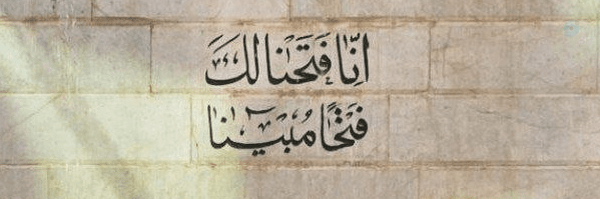 انّا فَتَحْنا لَكَ
فَتْحًا مُبينًا